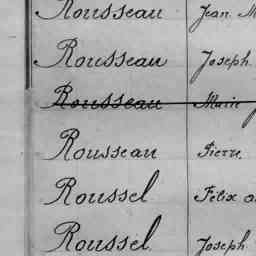 Rousseau Jean. M
Rousseau Joseph.
Rousseau Marie
Rousseau Pierre,
Roussel Felix
Roussel. Joseph